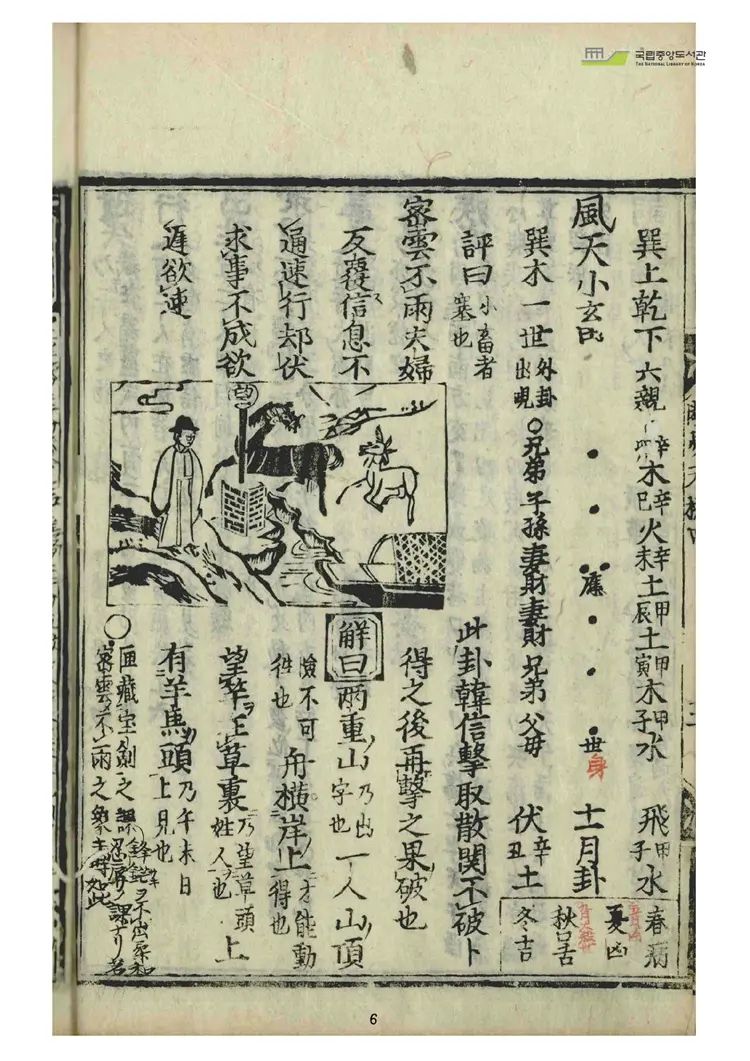 국립중앙도서관
THE NATIONAL LIBRARY OF KOREA
巽上乾下 六親 辛木 辛巳火 辛未土 甲辰土 甲寅木 甲子水 飛甲子水
風天小 世身 十一月卦
巽木一世 外卦出現 ○兄弟 子孫 妻財 妻財 兄弟 父母 伏辛丑土
春病
夏凶
秋吉
冬吉
評曰 小畜者塞也
密雲不雨夫婦
反覆信息不
通速行却伏
求事不成欲
遲欲速
望
此卦韓信擊取散関不破卜
得之後再擊之果破也
解曰 兩重山 乃出字也 一人山頂
險不可往也 舟橫岸上 才能動得也
望竿在草裏 乃望草頭姓人也 上
有羊馬頭 乃午未日上見也
○匣藏宝劍之課
密雲不雨之象
6